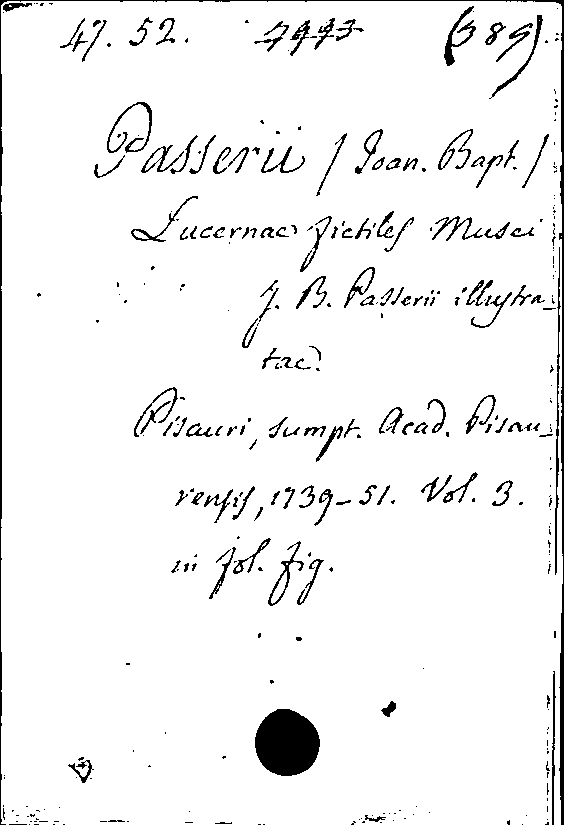 47. 52. 7993 (389)
Passerii / Joan. Bapt. /
Lucernae fictiles Musei
J. B. Passerii illustra-
tae.
Pisauri, sumpt. Acad. Pisau-
rensis, 1739-51. Vol. 3.
in fol. fig.